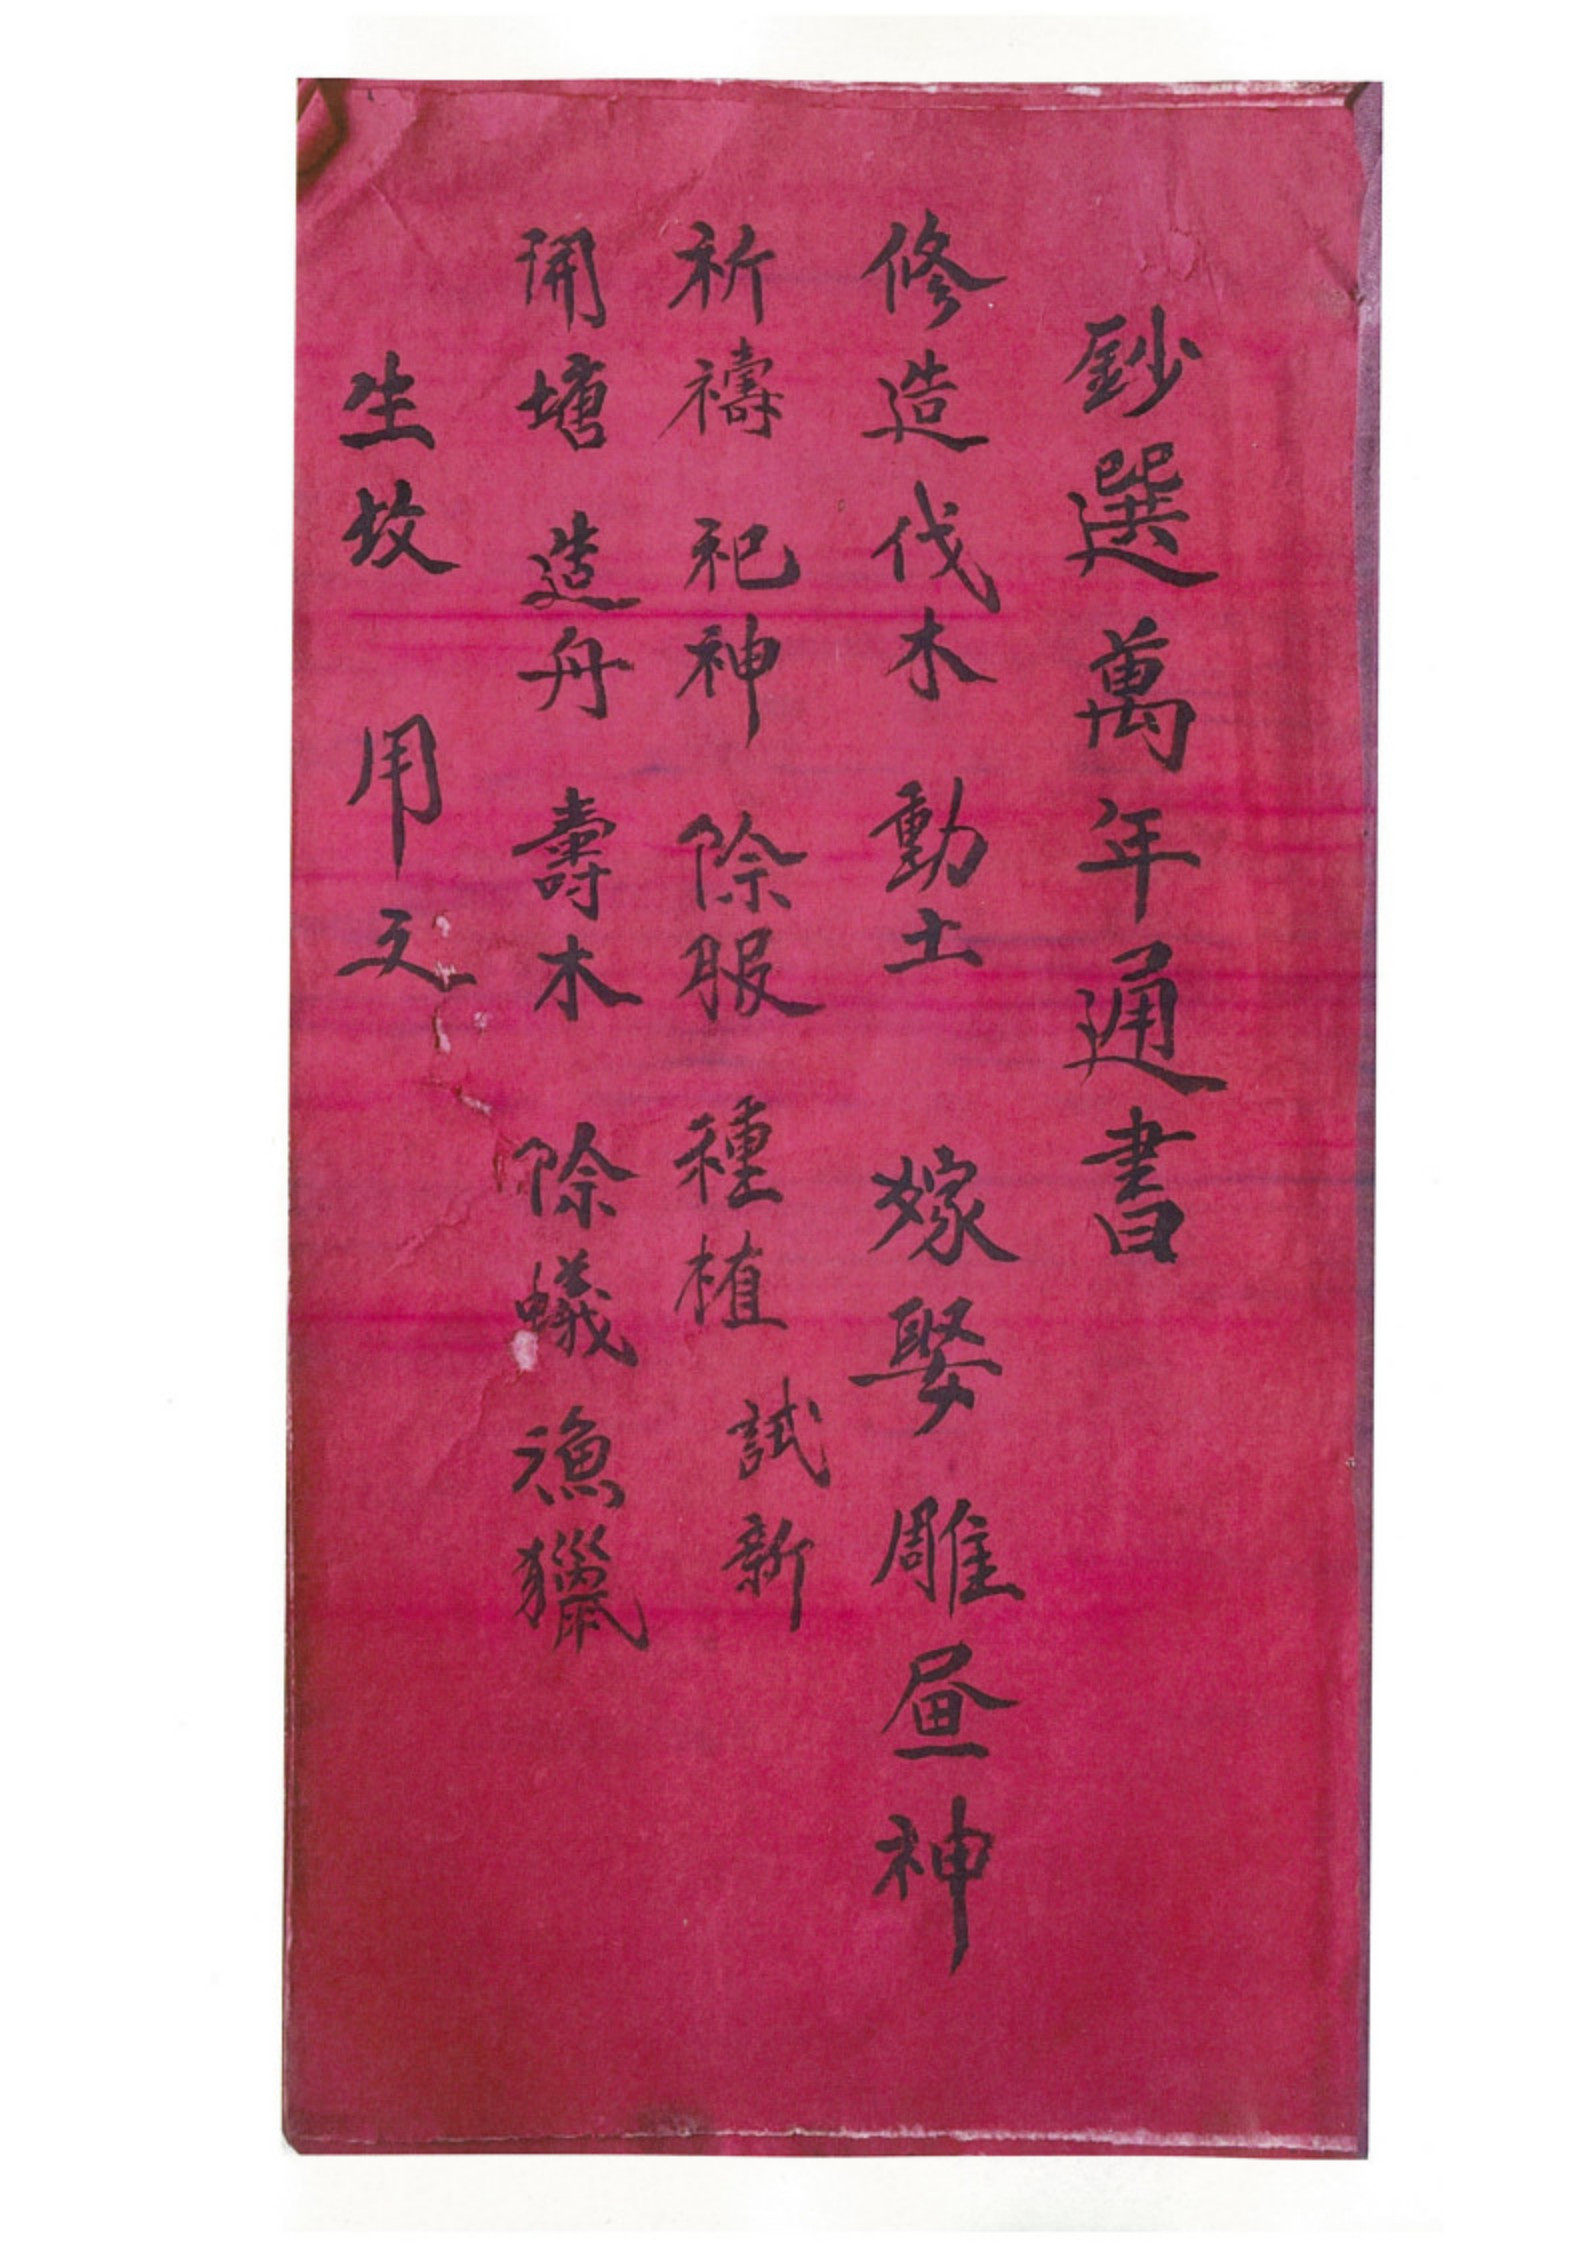 鈔選萬年通書
修造伐木 動土 嫁娶 雕画神
祈禱 祀神 除服 種植 試新
開塘 造舟 壽木 除蟻 漁獵
生坟 用之